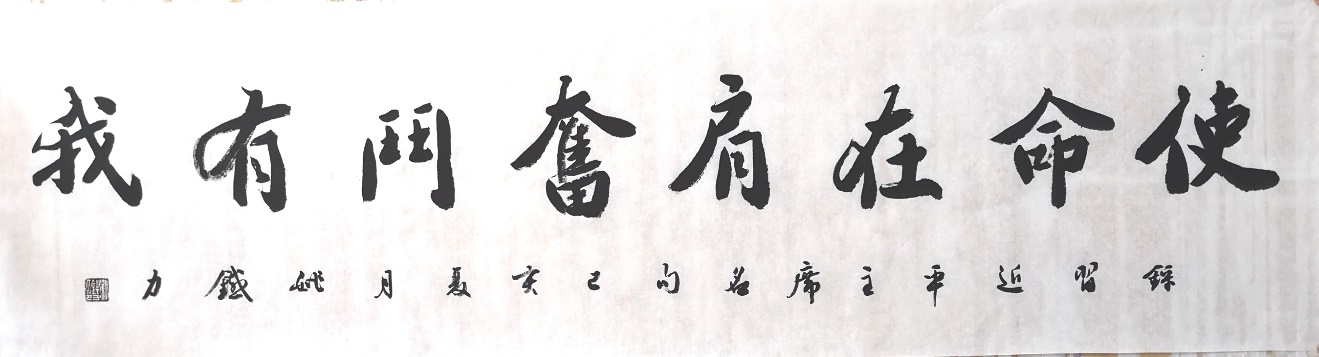 使命在肩奮鬥有我
錄習近平主席名句己亥夏月姚鐵力